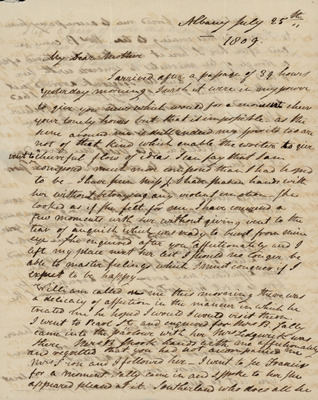 Albany July 25th
1809.
My Dear Mother
I arrived after a passage of 39 hours
yesterday morning. I wish it were in my power
to give you news which would for a moment cheer
your lonely hours but that is impossible as the
not of that kind which enable the writer to give
vent to cheerful flow of ideas I can say that I am
composed much more composed than I had hoped
to be. I have seen Miss J. I have shaken hands with
her without betraying any violent emotion. She
looked as if she felt for me. I have conversed a
few moments with her without giving vent to the
tear of anguish which was ready to burst from mine
eye. She enquired after you affectionately and I
left my place near her lest I should no longer be
able to master feelings which I must conquer if I
expect to be happy.
William called on me this morning there was
a delicacy of affection in the manner in which he
treated me he hoped I would visit them.
I went to and enquired for Mrs. D. Sally
came in to the parlour with her,
there. shook hands with me affectionately
and regretted that you had not accompanied me
Mrs. and I followed her. I went to the
for a moment Sally came in and spoke to her she
appeared pleased at it. Southerland who does all he